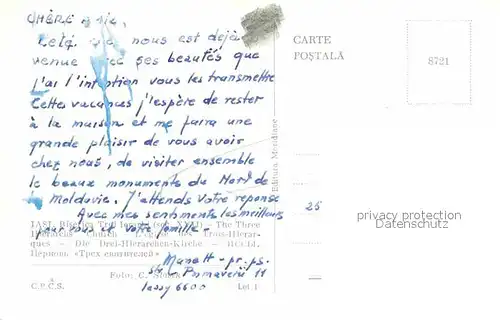 CHÈRE
L'été nous est déjà
venue avec ses beautés que
j'ai l'intention vous les transmettre
Cette vacances j'espère de rester
à la maison et me faira une
grande plaisir de vous avoir
chez nous, de visiter ensemble
le beaux monuments du Nord de
la Moldavie. J'attends votre réponse
Avec mes sentiments les meilleurs
pour vous et votre famille.
IAȘI. The Three
Hierarchs Church L'église des Trois-Hierar-
ques — Die Drei-Hierarchen-Kirche
Церковь «Трех святителей»
Foto:
C.P.C.S.
Lei 1
str. Primaverii 11
Iassy 6600
Editura Meridiane
CARTE
POȘTALĂ
8721
25
privacy protection
Datenschutz